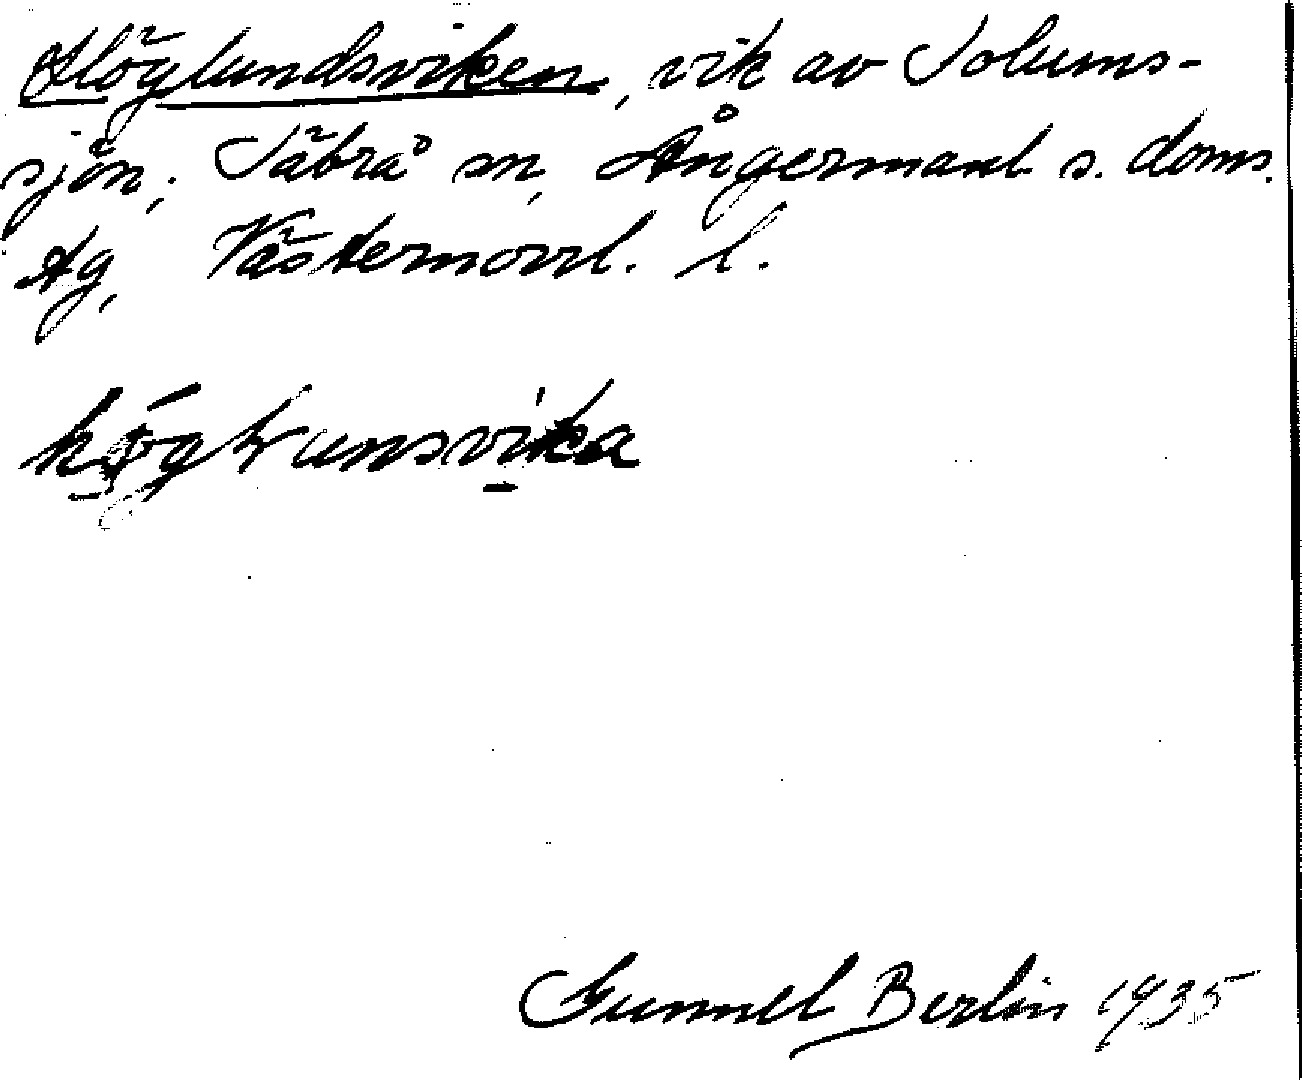 Höglundsviken, vik av Solums-
sjön, Säbrå sn, Ångermanl. s. doms.
tg, Västernorrl. l.
Gunnel Berlin 1935